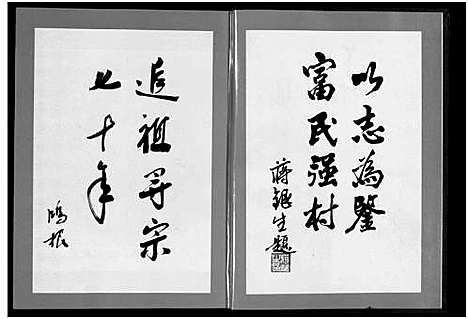 以志为鉴
富民强村
蒋银生题
追祖寻宗
七十年
鸿振